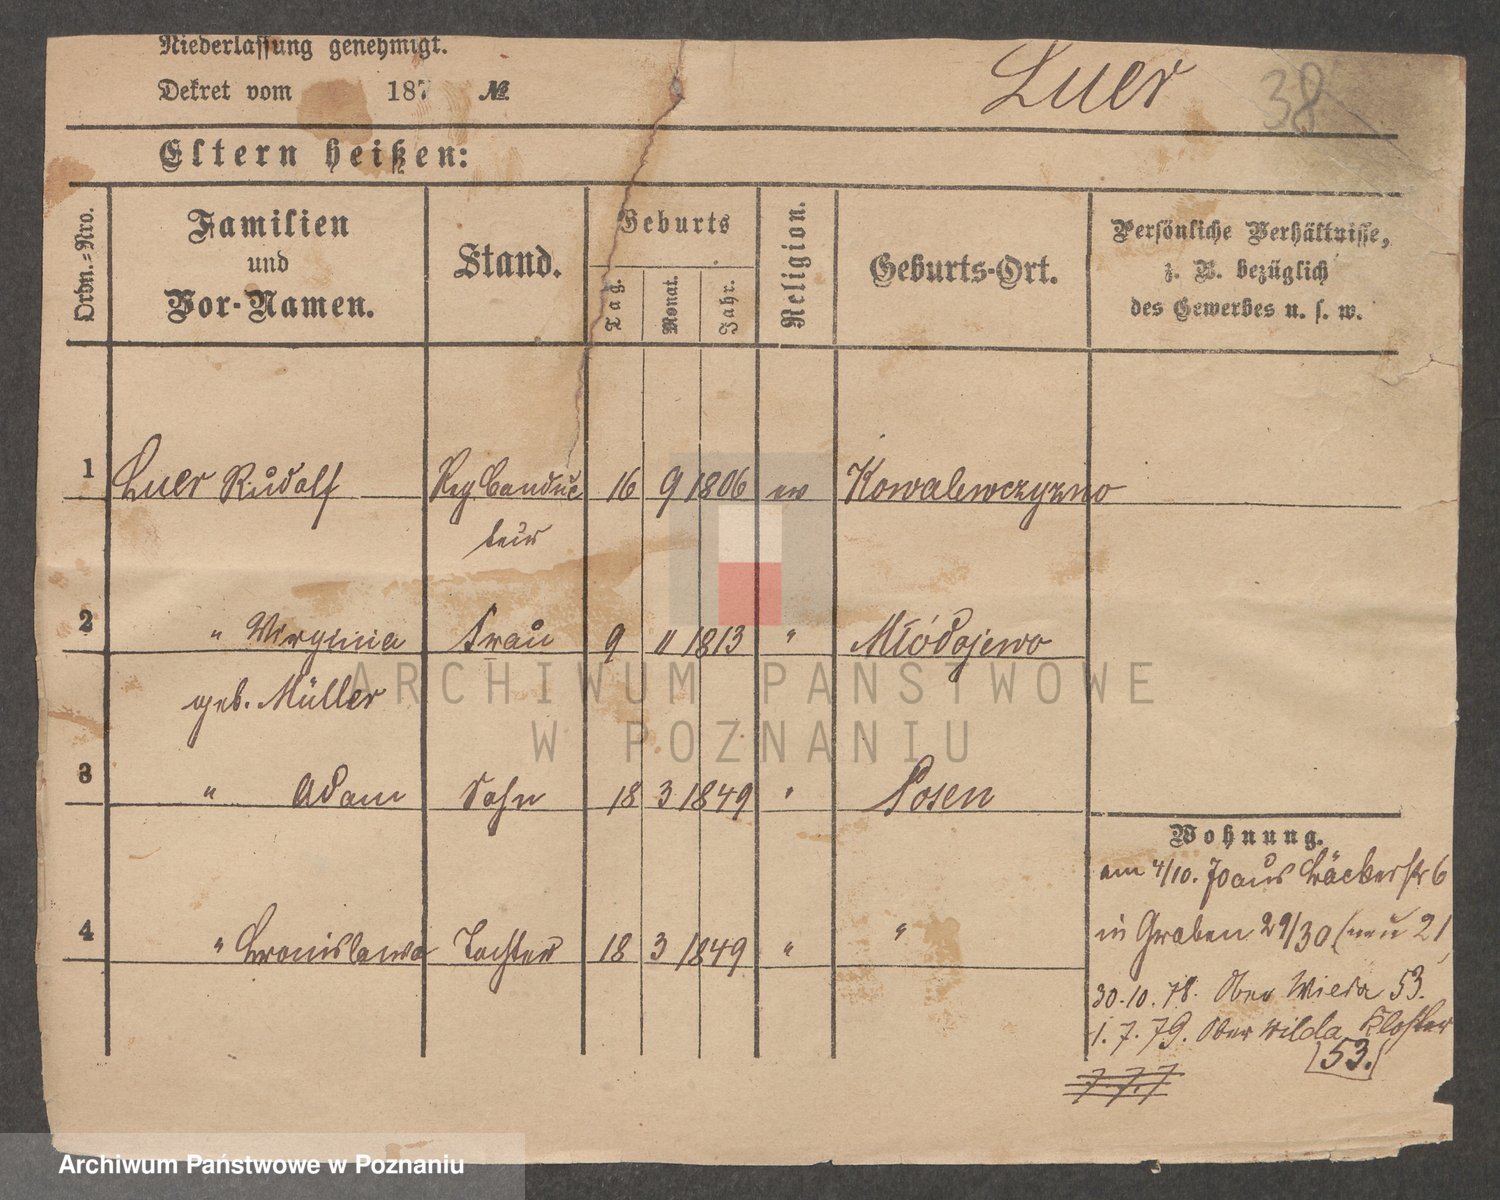 Niederlassung genehmigt.
Dekret vom 187 №
Luer
38
Eltern heißen:
Ordn.=Nro.
Familien
und
Vor-Namen.
Stand.
Geburts
Tag.
Monat.
Jahr.
Religion.
Geburts-Ort.
Persönliche Verhältnisse,
z. B. bezüglich
des Gewerbes u. s. w.
1 Luer Rudolf Reg Conduc 16 9 1806 ev Kowalewczyzno
teur
2 " Virginia Frau 9 11 1813 " Młódojewo
geb. Müller
3 " Adam Sohn 18 3 1849 " Posen
4 " Bronislawa Tochter 18 3 1849 " "
Wohnung.
am 4/10. 70 aus Bäckerstr 6
in Graben 29/30 (neu 21
30.10.78. Ober Wilda 53.
1.7.79. Ober Wilda Kloster
53.
7.7.7
ARCHIWUM PAŃSTWOWE
W POZNANIU
Archiwum Państwowe w Poznaniu